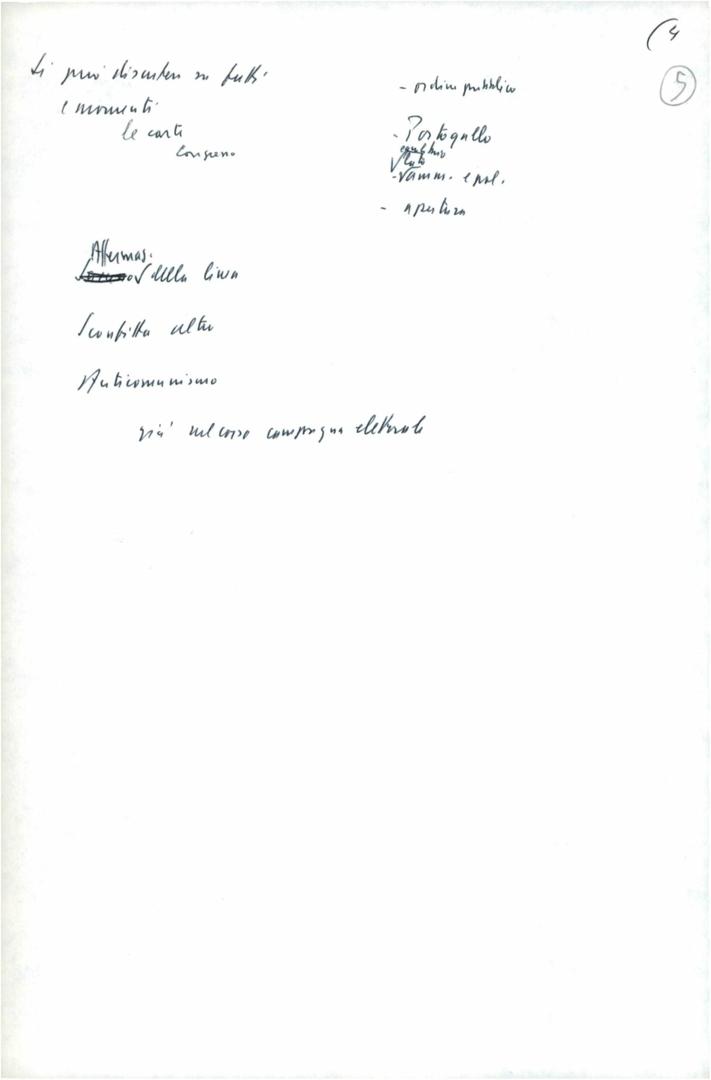 (4
5
Si può discutere su tutti
i momenti
le carte
Congresso
- ordine pubblico
- Portogallo
- amm. e pol.
- apertura
Affermaz.
della linea
Sconfitta altre
Anticomunismo
già nel corso campagna elettorale